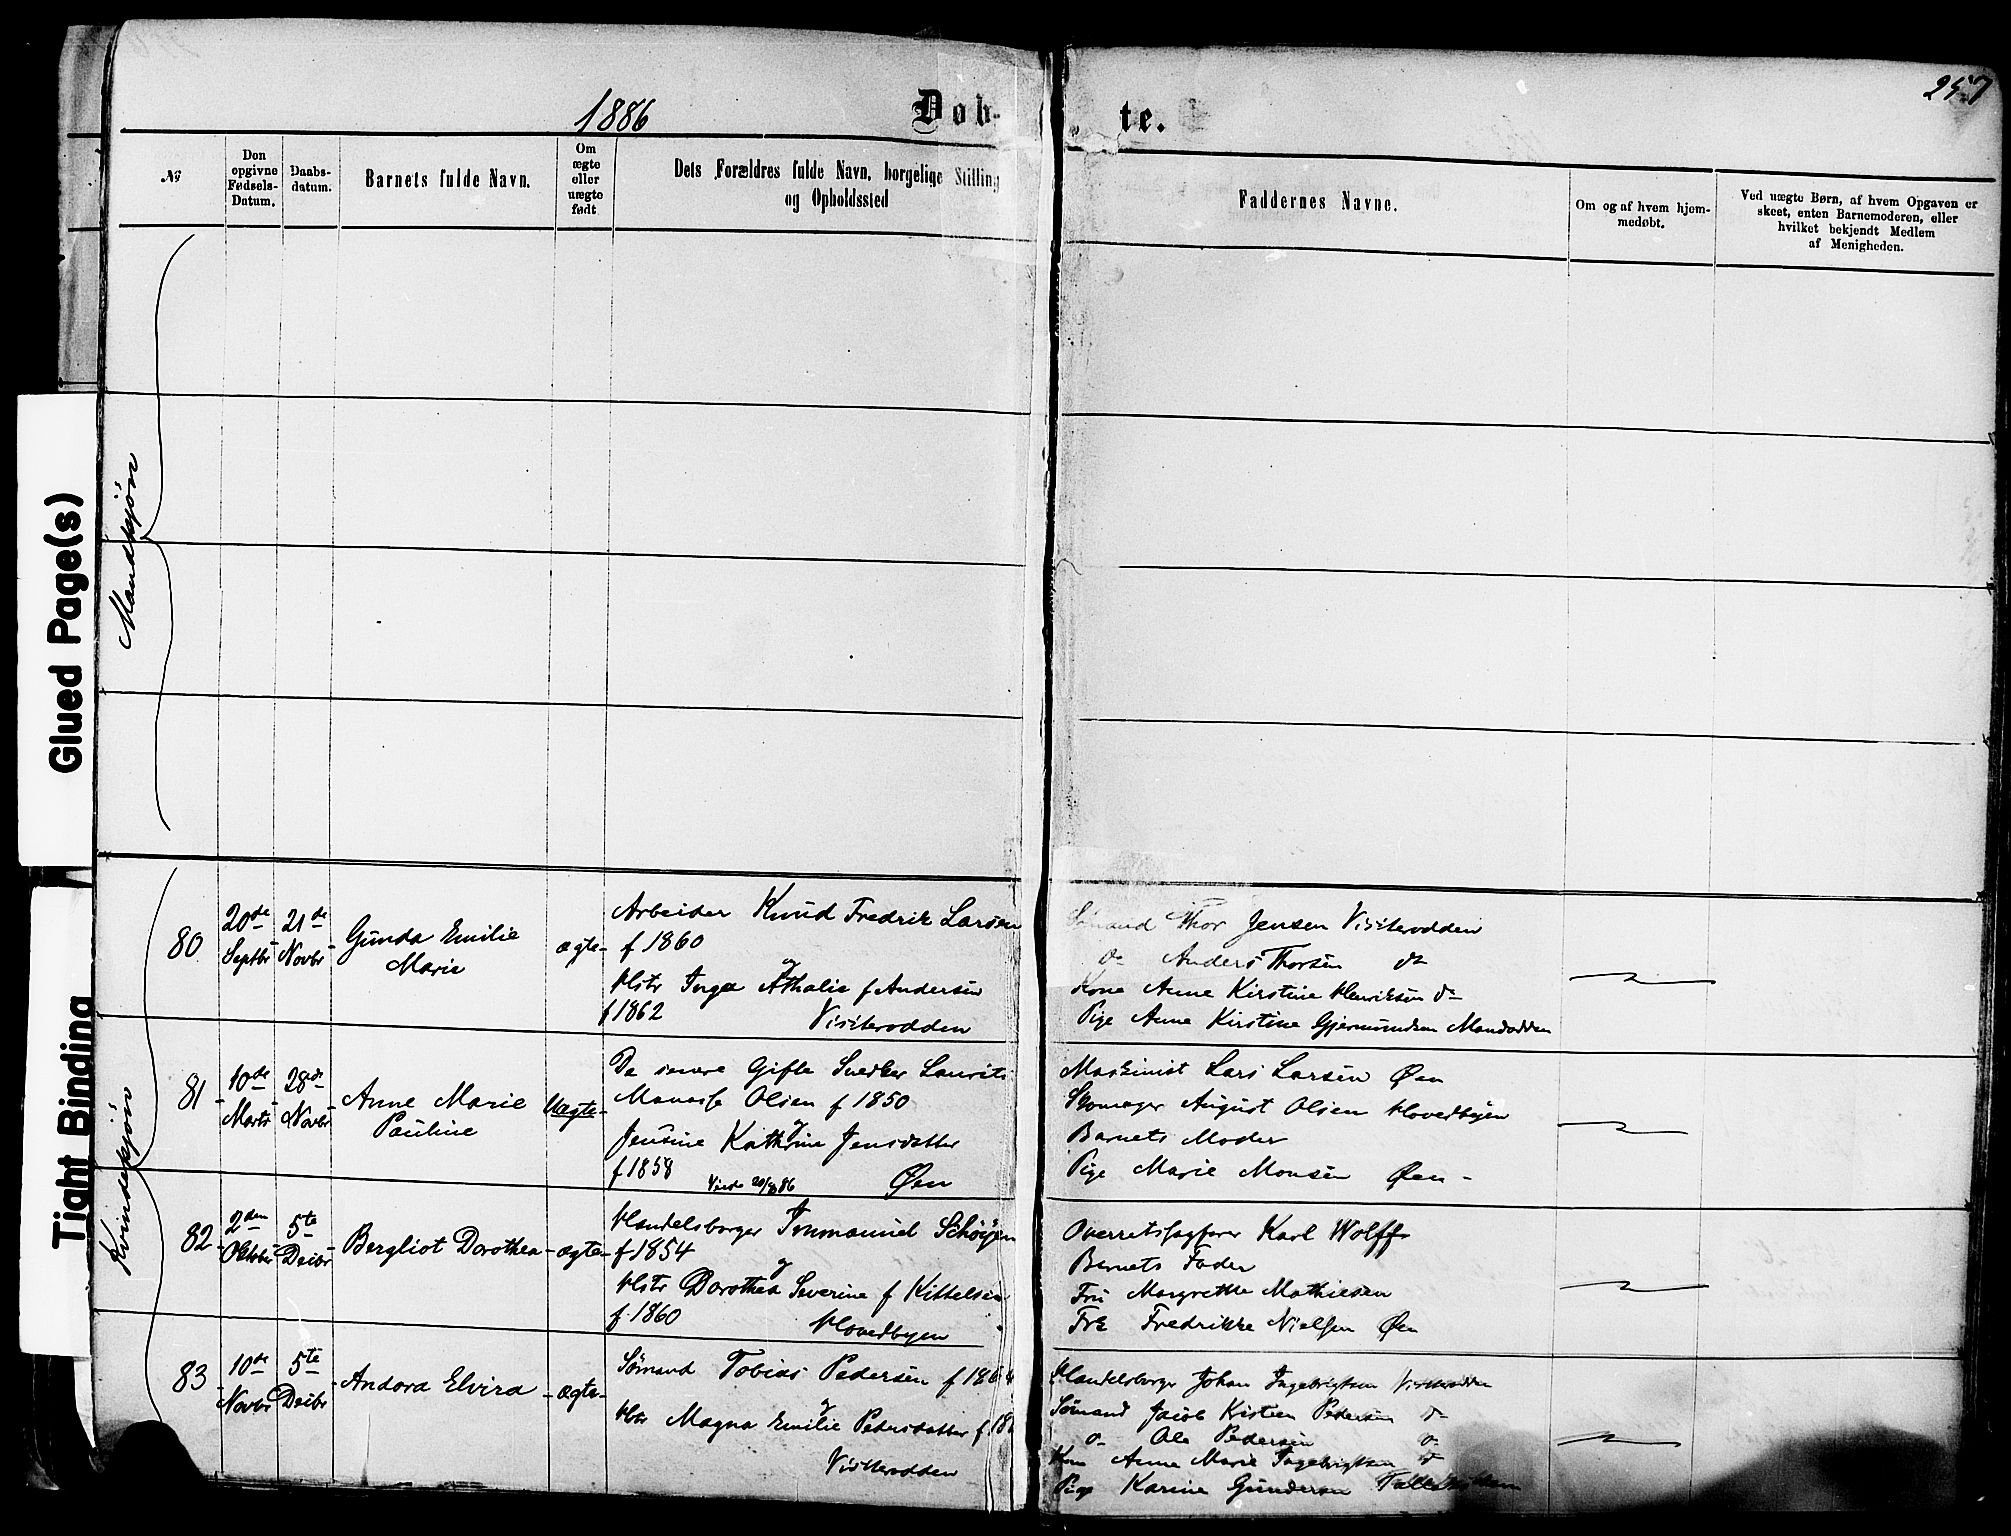 257
1886
Døb-
te.
№
Den opgivne Fødsels-Datum.
Daabs-datum.
Barnets fulde Navn.
Om ægte eller uægte født
Dets Forældres fulde Navn, borgelige Stilling
og Opholdssted
Faddernes Navne.
Om og af hvem hjem-
medøbt.
Ved uægte Børn, af hvem Opgaven er
skeet, enten Barnemoderen, eller
hvilket bekjendt Medlem
af Menigheden.
Mandkjøn
Glued Page(s)
Tight Binding
Kvindekjøn
80
20de
Septbr
21de
Novbr
Gunda Emilie
Marie
ægte
Arbeider Knud Fredrik Larsen
f 1860
og
Hstr Inga Athalie f Andersen
f 1862 Visterodden
Sømand Thor Jensen Visterodden
do Anders Thorsen do
Kone Anne Kirstine Henriksen do
Pige Anne Kirstine Gjermundsen
81
10de
Marts
28de
Novbr
Anne Marie
Pauline
Uægte
De senere Gifte Snedker Laurits
Manasse Olsen f 1850
og
Jensine Kathrine Jensdatter
f 1858 Øen
Maskinist Lars Larsen Øen
Skomager August Olsen Hovedbyen
Barnets Moder
Pige Marie Monsen Øen
82
2den
Oktober
5te
Decbr
Bergliot Dorothea
ægte
Handelsborger Immanuel
f 1854
og
Hstr Dorothea Severine f Kittelsen
f. 1860 Hovedbyen
Overretssagfører Karl Wolff
Barnets Fader
Fru Margrethe Mathiesen
Frk Fredrikke Nielsen Øen
83
10de
Novbr
5te
Decbr
Andora Elvira
ægte
Sømand Tobias Pedersen
og
Hstr Magna Emilie Pedersdatter
Visterodden
Handelsborger Johan Ingebrigtsen Visterodden
Sømand Jacob Kristen Pedersen do
do Ole Pedersen do
Kone Anne Marie Ingebrigtsen do
Pige Karine Gundersen